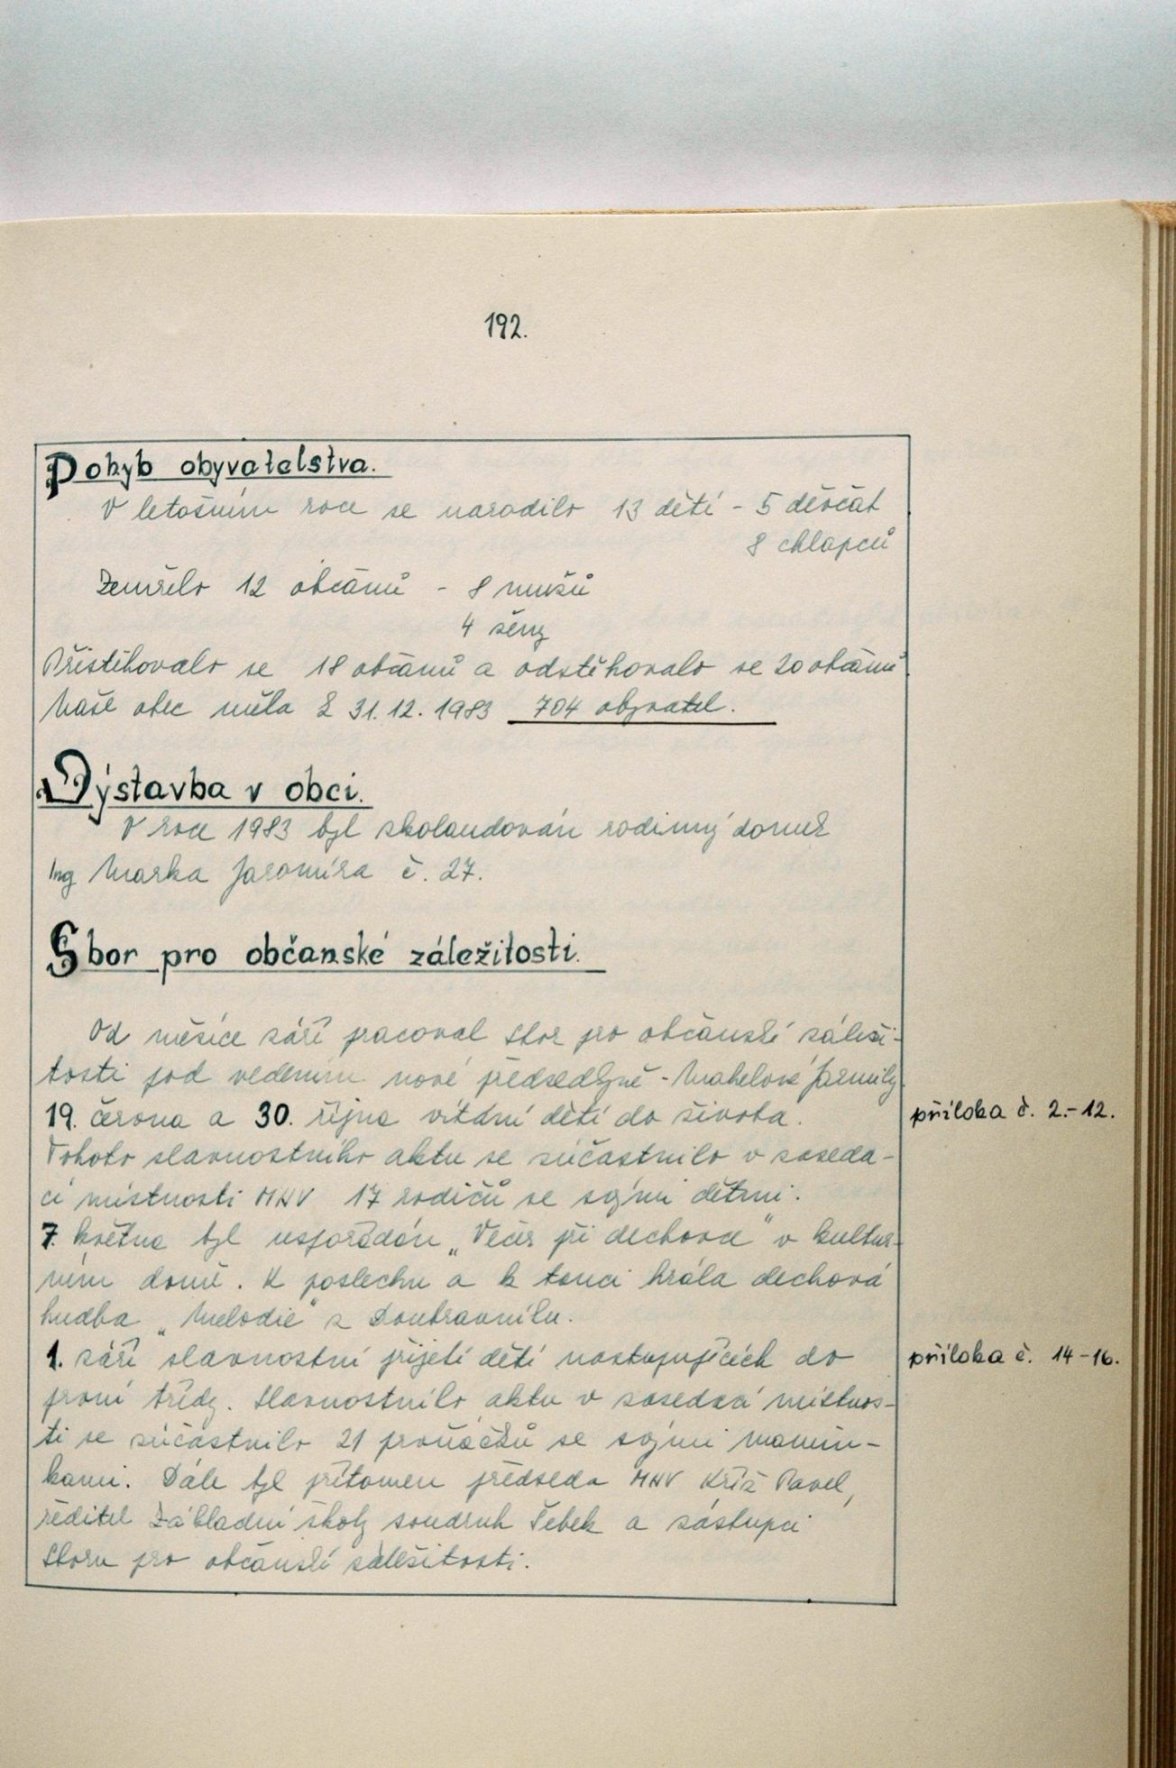 192.
Pohyb obyvatelstva.
V letošním roce se narodilo 13 dětí - 5 děvčat
8 chlapců
Zemřelo 12 občanů - 8 mužů
4 ženy
Přistěhovalo se 18 občanů a odstěhovalo se 20 občanů
Naše obec měla k 31.12.1983 704 obyvatel.
Výstavba v obci.
V roce 1983 byl zkolaudován rodinný domek
Ing Marka Jaromíra č. 27.
Sbor pro občanské záležitosti.
Od měsíce září pracoval sbor pro občanské záleži-
tosti pod vedením nové předsedkyně - Jarmily
19. června a 30. října vítání dětí do života.
příloha č. 2.-12.
Tohoto slavnostního aktu se zúčastnilo v zaseda-
cí místnosti MNV 17 rodičů se svými dětmi.
7. května byl uspořádán „Večer při dechovce" v kultur-
ním domě. K poslechu a k tanci hrála dechová
hudba „Melodie" z Doubravníku.
1. září slavnostní přijetí dětí nastupujících do
příloha č. 14-16.
první třídy. Slavnostního aktu v zasedací místnos-
ti se zúčastnilo 21 prvňáčků se svými mamin-
kami. Dále byl přítomen předseda MNV Kříž Pavel,
ředitel Základní školy soudruh Šebek a zástupci
sboru pro občanské záležitosti.